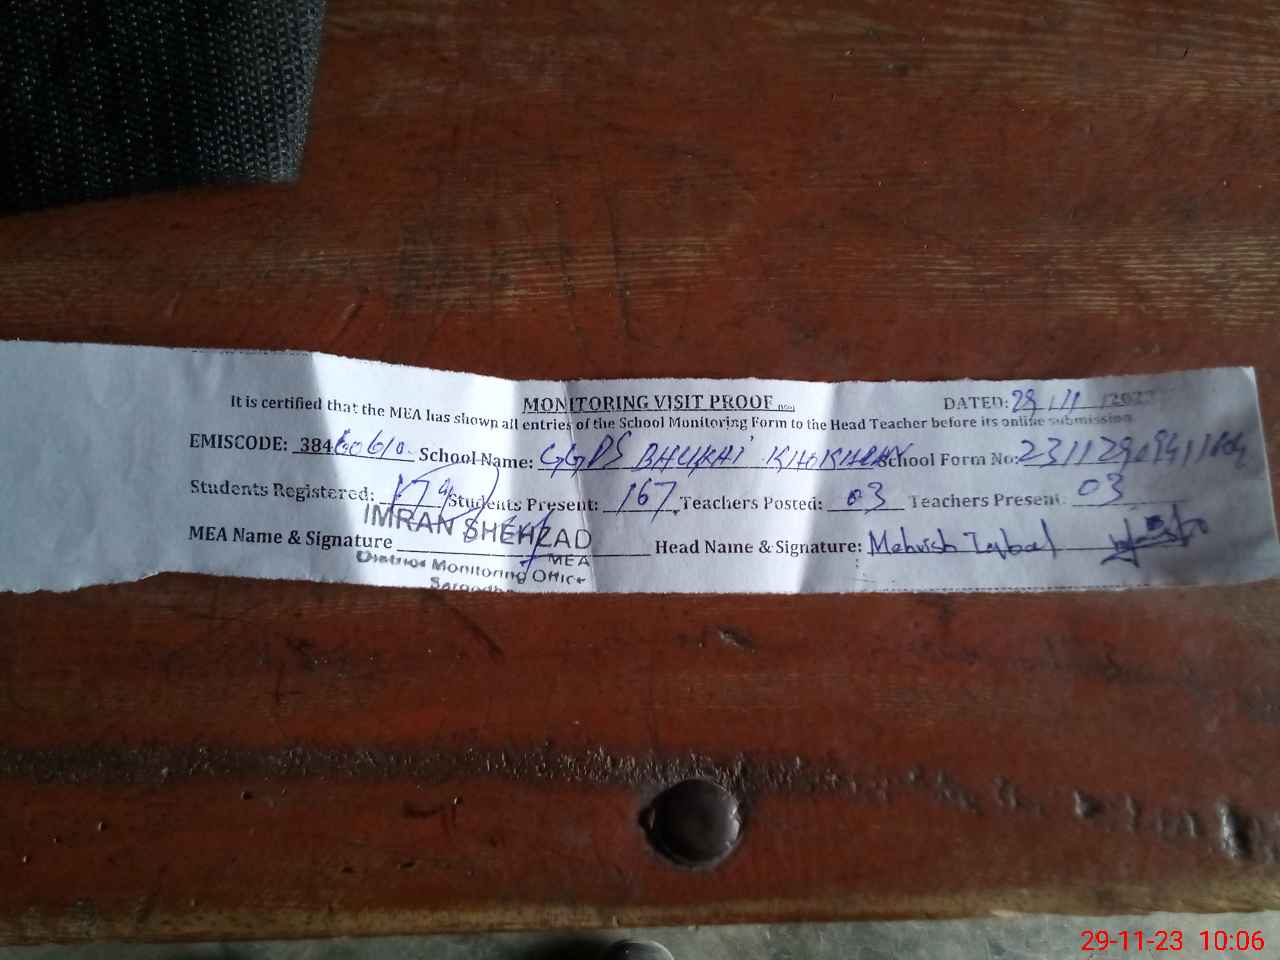 MONITORING VISIT PROOF
DATED: 29/11/2023
It is certified that the MEA has shown all entries of the School Monitoring Form to the Head Teacher before its online submission.
EMISCODE: 38460610 School Name: GGPS BHUKHI KHOKHRAN School Form No:
Students Registered: 179 Students Present: 167 Teachers Posted: 03 Teachers Present: 03
MEA Name & Signature Head Name & Signature: Mehvish Iqbal
IMRAN SHEHZAD
MEA
District Monitoring Office
Sargodha
29-11-23 10:06